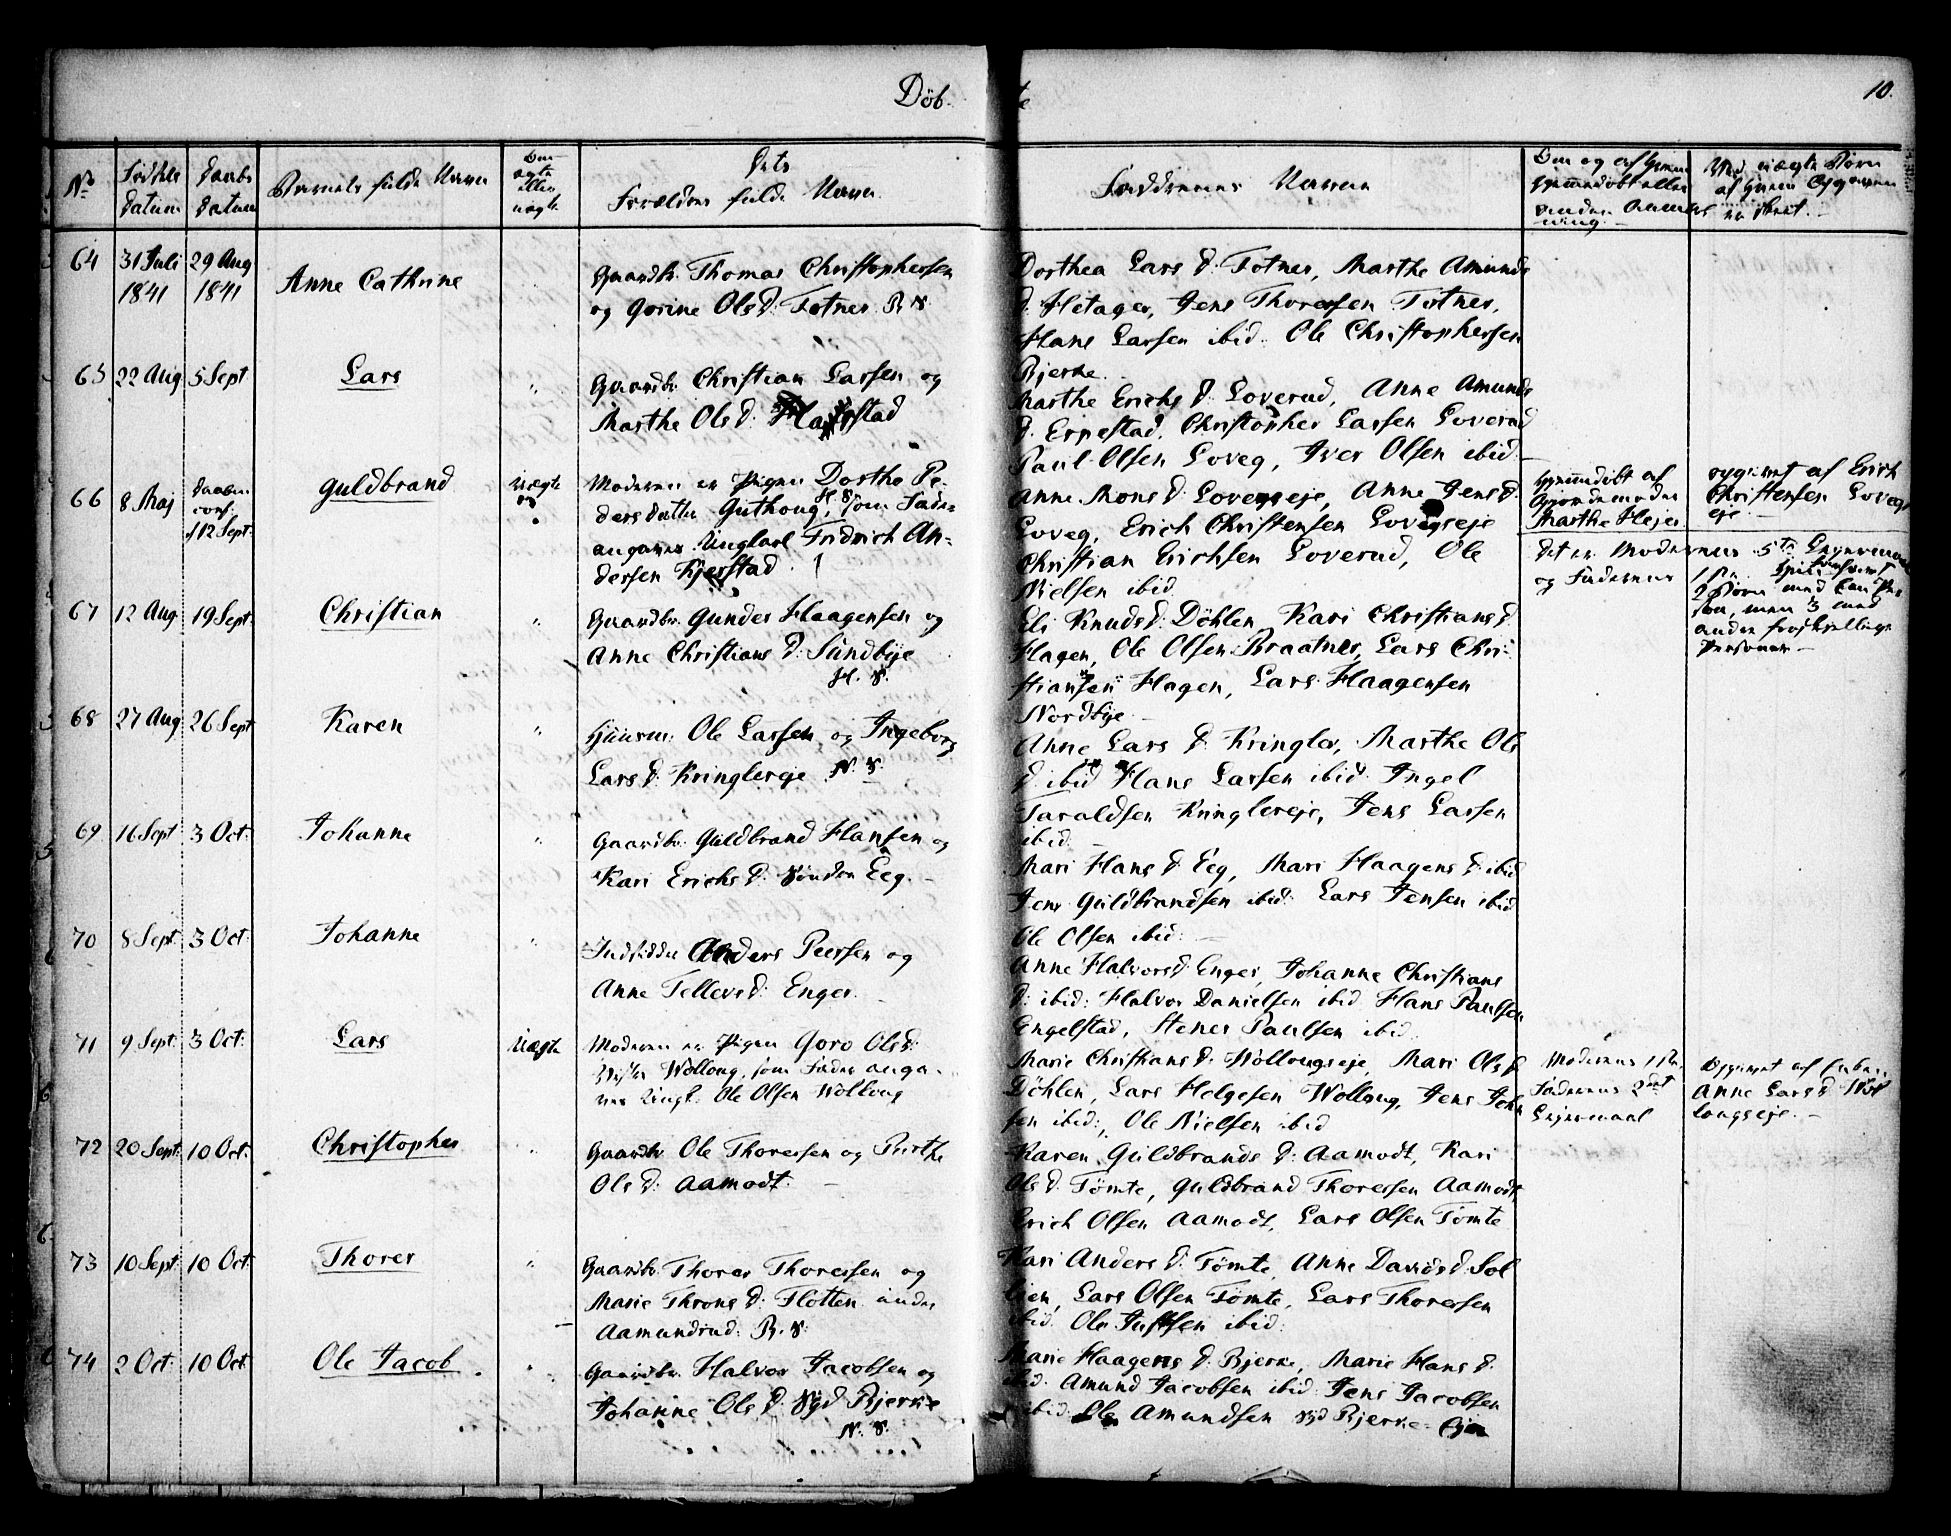 Döbte
10.
No
Fødsels datum
Daabs datum
Barnets fulde Navn
Om ægte eller uægte
Dets
Forældres fulde Navn.
Faddernes Navne
Om og af hvem
hjemmedøbt eller
anden Anmærk-
ning.
Ved uægte Børn
af hvem Opgaven
er skeet.
64 31 Juli 29 Aug
1841 1841
Anne Cathrine
Gaardbr. Thomas Christophersen
og Gorine Olsd. Totner. B. S.
Dorthea Larsd. Totner, Marthe Amunds
d. Hetager, Jens Thoresen Totner,
Hans Larsen ibid. Ole Christophersen
Bjerke.
65 22 Aug 5 Sept
Lars
Gaardbr. Christian Larsen og
Marthe Olsd.
Marthe Erichsd. Loverud, Anne Amunds
d. Erpestad, Christopher Larsen Loverud
Paul Olsen Loveg, Iver Olsen ibid.
66 8 Maj Daaben conf. 12 Sept.
Guldbrand
Uægte
Moderen er Pigen Dorthe Pe-
ders datter Guthoug, H. S. som Fader
angaves Ungkarl Fridrich An-
dersen Kjerstad.
Anne Monsd. Lovegseje, Anne Jensd.
Loveg, Erich Christensen Lovegseje
Christian Erichsen Loverud, Ole
Nielsen ibid.
hjemmedøbt af
Gjordemoder
Marthe Hejer
opgivet af Erich
Christensen Lovegs
eje
Det er Moderens 5te Lejermaal
og Faderens 1ste.
2 Børn med Een Per
son, men 3 med
andre forskjellige
Personer
67 12 Aug 19 Sept.
Christian
Gaardbr. Gunder Haagensen og
Anne Christiansd. Sundbye
H. S.
Eli Knudsd. Döhlen, Kari Christiansd.
Hagen, Ole Olsen Braatner, Lars Chri-
stiansen Hagen, Lars Haagensen
Nordbye
68 27 Aug 26 Sept
Karen
Huusm. Ole Larsen, og Ingeborg
Larsd. Kringlereje N. S.
Anne Larsd. Kringler, Marthe Ols
d. ibid Hans Larsen ibid. Ingel
Taraldsen Kringlereje, Jens Larsen
ibid.
69 16 Sept 3 Oct.
Johanne
Gaardbr. Guldbrand Hansen og
Kari Erichsd. Søndre Eeg.
Mari Hansd. Eeg, Mari Haagensd. ibid
Jens Guldbrandsen ibid. Lars Jensen ibid
Ole Olsen ibid.
70 8 Sept. 3 Oct.
Johanne
Indsidder Anders Peersen og
Anne Tellevsd. Enger.
Anne Halvorsd. Enger, Johanne Christians
d. ibid: Halvor Danielsen ibid Hans Paulsen
Engelstad, Stener Paulsen ibid.
71 9 Sept. 3 Oct.
Lars
Uægte
Moderen er Pigen Goro Olsd.
Wollong, som Fader anga-
ves Ungk. Ole Olsen Wollong
Marie Christiansd. Wollongseje, Mari Olsd.
Döhlen, Lars Helgesen Wollong, Jens John
sen ibid., Ole Nielsen ibid
Moderens 1ste,
Faderens 2det
Lejermaal
Opgivet af
Anne Larsd. Wol
longseje.
72 20 Sept. 10 Oct.
Christopher
Gaardbr. Ole Thoresen og Berthe
Olsd. Aamodt.
Karen Guldbrandsd. Aamodt, Kari
Olsd. Tömte, Guldbrand Thoresen Aamodt,
Erich Olsen Aamodt, Lars Olsen Tömte
73 10 Sept 10 Oct.
Thorer
Gaardbr. Thorer Thoresen og
Marie Thronsd. Flotten under
Aamundrud. B. S.
Kari Andersd. Tömte, Anne Davidsd. Sol
lien, Lars Olsen Tömte, Lars Thoresen
ibid. Ole Justsen ibid.
74 2 Oct. 10 Oct.
Ole Jacob
Gaardbr. Halvor Jacobsen og
Johanne Olsd. Syd Bjerke
N. S.
Marie Haagensd. Bjerke, Marie Hansd.
ibid. Amund Jacobsen ibid. Jens Jacobsen
ibid. Ole Amundsen Syd Bjerke-Eje